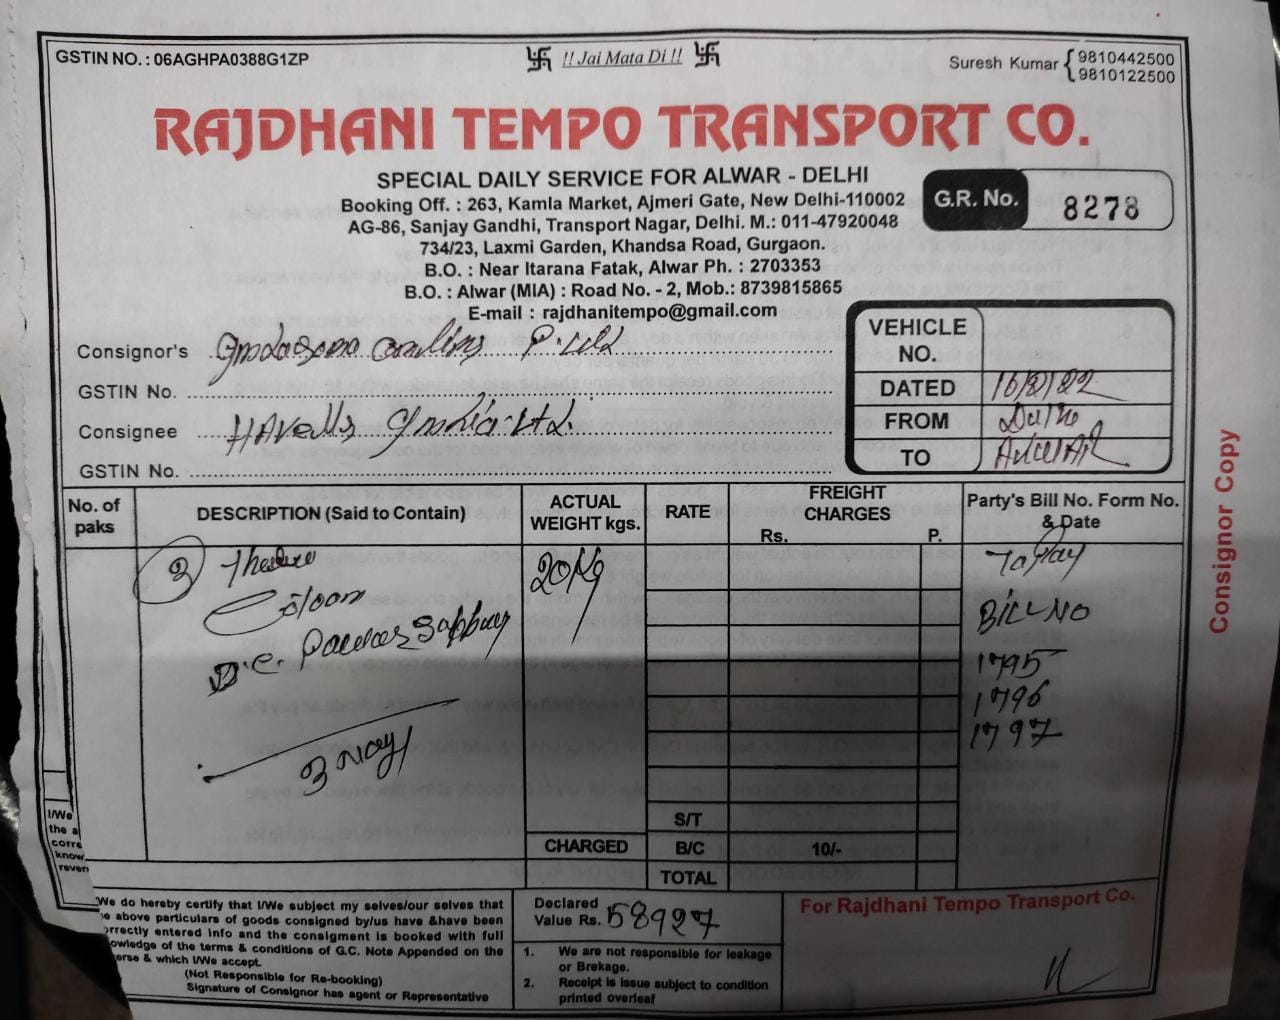 GSTIN NO. : 06AGHPA0388G1ZP
!! Jai Mata Di !!
Suresh Kumar 9810442500
9810122500
RAJDHANI TEMPO TRANSPORT CO.
SPECIAL DAILY SERVICE FOR ALWAR - DELHI
Booking Off. : 263, Kamla Market, Ajmeri Gate, New Delhi-110002
AG-86, Sanjay Gandhi, Transport Nagar, Delhi. M.: 011-47920048
734/23, Laxmi Garden, Khandsa Road, Gurgaon.
B.O. : Near Itarana Fatak, Alwar Ph. : 2703353
B.O. : Alwar (MIA) : Road No. - 2, Mob.: 8739815865
E-mail : rajdhanitempo@gmail.com
G.R. No. 8278
Consignor's P. Ltd
GSTIN No.
Consignee HAVells India Ltd.
GSTIN No.
VEHICLE NO.
DATED 16/2/22
FROM
TO
Consignor Copy
No. of paks
DESCRIPTION (Said to Contain)
ACTUAL WEIGHT kgs.
RATE
FREIGHT CHARGES
Rs. P.
Party's Bill No. Form No. & Date
3
20Kg
To Pay
BILL NO
1795
1796
1797
3
S/T
CHARGED B/C 10/-
TOTAL
I/We
the a
corre
know
rever
We do hereby certify that I/We subject my selves/our selves that
above particulars of goods consigned by/us have &have been
orrectly entered Info and the consigment is booked with full
owledge of the terms & conditions of G.C. Note Appended on the
erse & which I/We accept.
(Not Responsible for Re-booking)
Signature of Consignor has agent or Representative
Declared
Value Rs. 58927
1. We are not responsible for leakage
or Brekage.
2. Receipt is issue subject to condition
printed overleaf
For Rajdhani Tempo Transport Co.